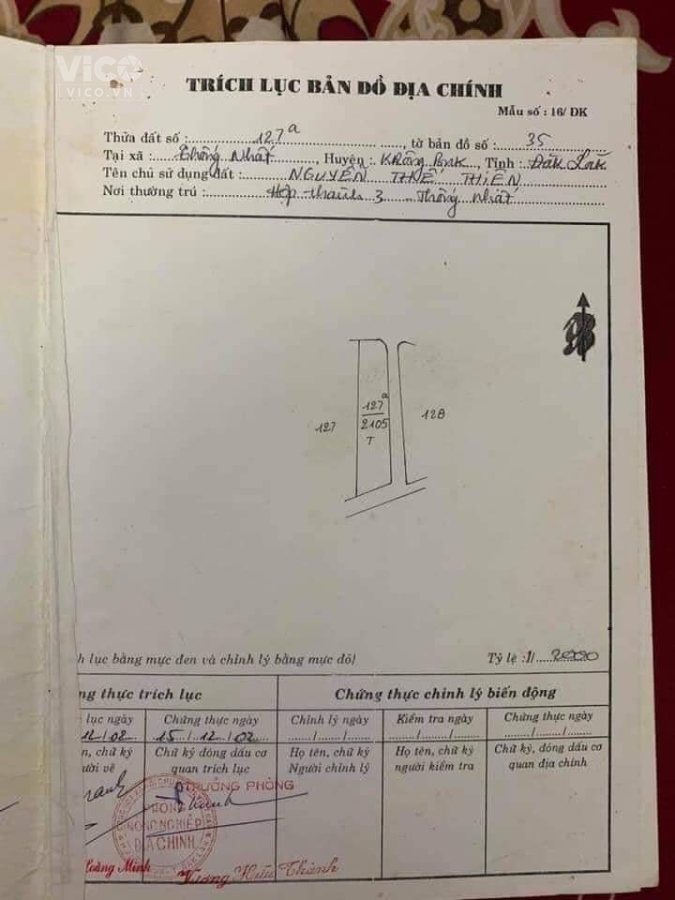 VICO
VICO.VN
TRÍCH LỤC BẢN ĐỒ ĐỊA CHÍNH
Mẫu số : 16/ ĐK
Thửa đất số : 127a, tờ bản đồ số : 35
Tại xã : Thống Nhất, Huyện : Krông Buk, Tỉnh : Đăk Lăk
Tên chủ sử dụng đất : NGUYỄN THẾ THIỆN
Nơi thường trú : Hợp thành 3 Thống Nhất
127
127a
2105
T
128
h lục bằng mực đen và chỉnh lý bằng mực đỏ)
Tỷ lệ :1/ 2000
ng thực trích lục
Chứng thực chỉnh lý biến động
lục ngày
12/02
Chứng thực ngày
15/12/02
Chỉnh lý ngày
Kiểm tra ngày
Chứng thực ngày
n, chữ ký
ười vẽ
Chữ ký đóng dấu cơ
quan trích lục
Họ tên, chữ ký
Người chỉnh lý
Họ tên, chữ ký
người kiểm tra
Chữ ký, đóng dấu cơ
quan địa chính
TRƯỞNG PHÒNG
PHÒNG
NÔNG NGHIỆP
ĐỊA CHÍNH
Hoàng Minh
Vương Hữu Thành